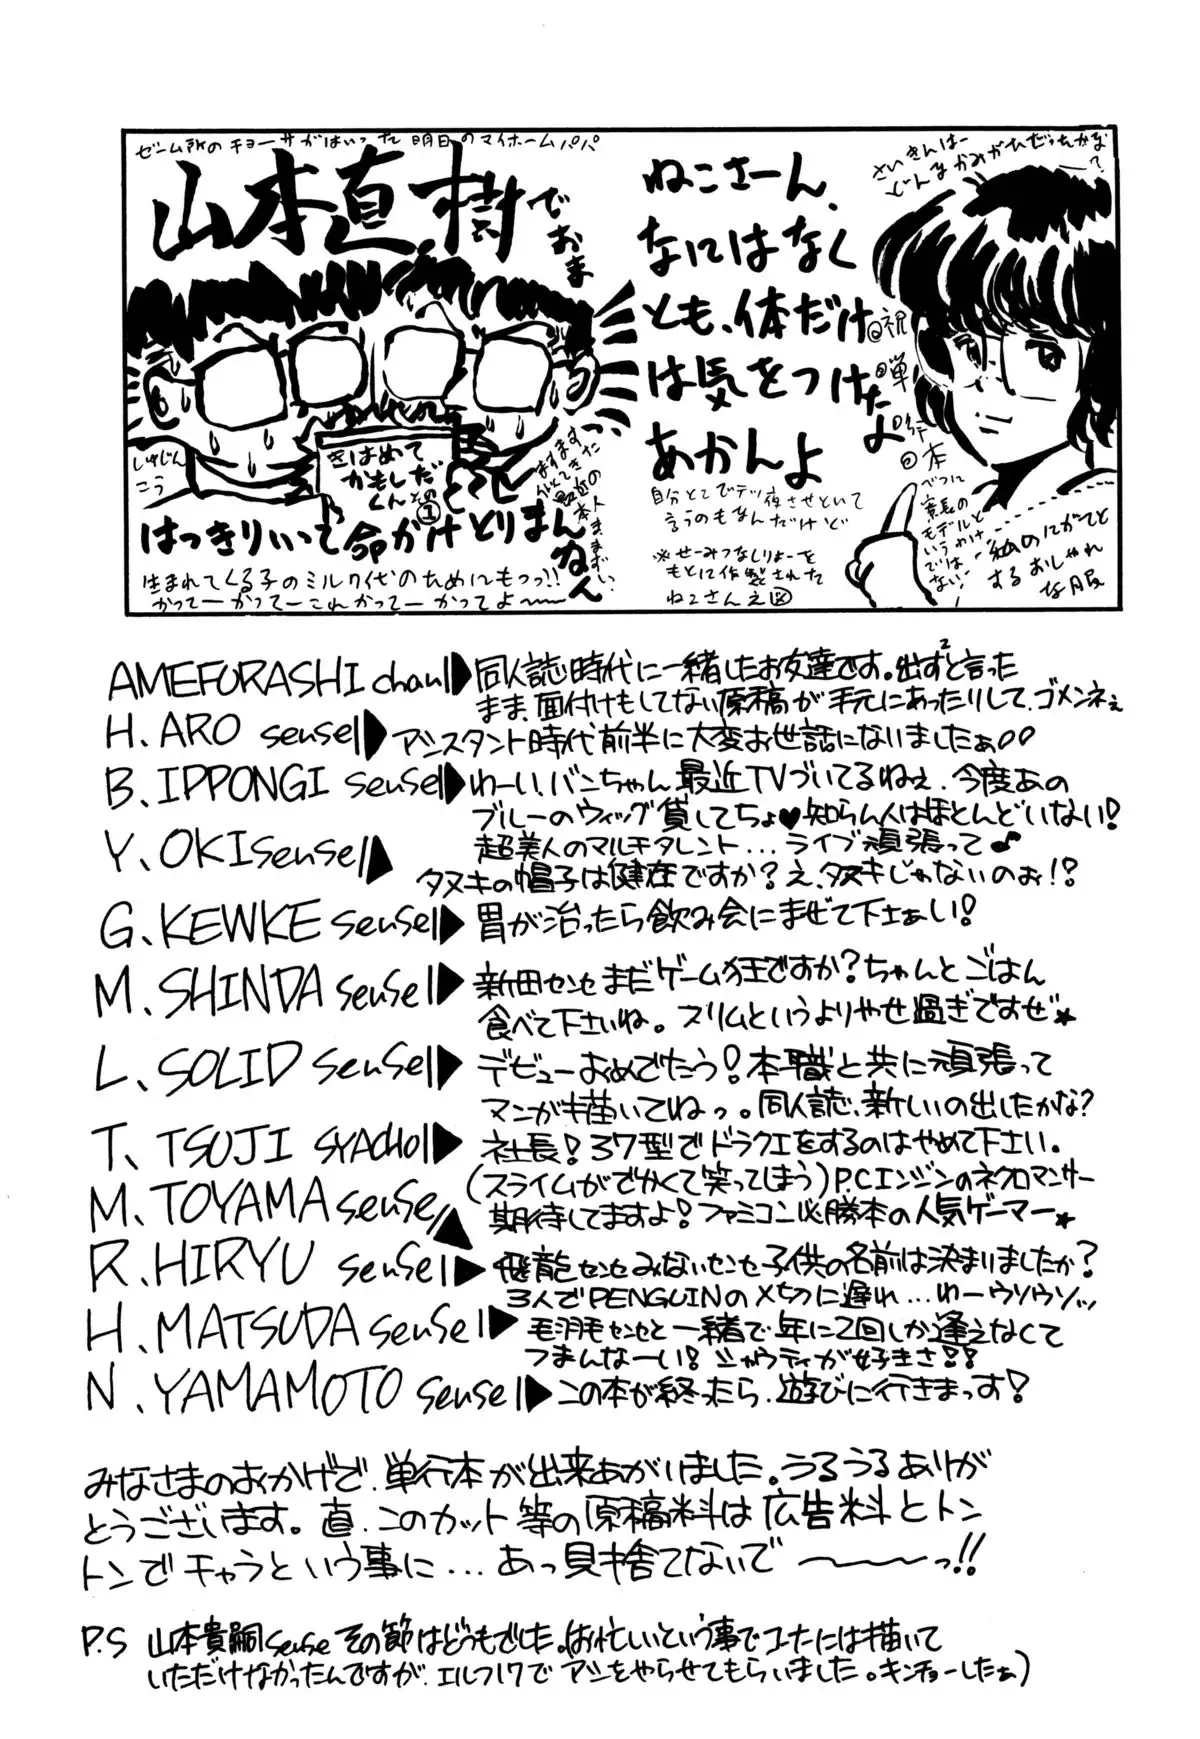 ゼーム所のチョーサがはいった明日のマイホームパパ
山本直樹でおま
しゅじんこう
きはめて
かもしだ
くんその①
はっきりいって命がけとりまんねん
生まれてくる子のミルク代のためにもつっ!!
かってーかってーこれかってーかってよ〜〜
さいきんはー
どんなかみがひだったかなって?
ねこさーん、
なにはなく
とも、体だけ
は気をつけたよ
あかんよ
祝単行本
自分とこでテツ夜させといて
言うのもなんだけど
※せーみつなしりょーを
もとに作製された
ねこさんえ図
べつに
家長の
モデルと
いうわけ
ではない
私のにがてと
するおしゃれ
な服
AMEFURASHI chan▶同人誌時代に一緒したお友達です。出ず²と言った
まま、面付けもしてない原稿が手元にあったりして、ゴメンネぇ
H. ARO sensei▶アシスタント時代前半に大変お世話にないましたぁ
B. IPPONGI sensei▶わーい、バンちゃん最近TVづいてるねぇ、今度あの
ブルーのウィッグ貸してちょ♥知らん人はほとんどいない!
Y. OKI sensei▶超美人のマルチタレント...ライブ頑張って♪
タヌキの帽子は健在ですか?え、タヌキじゃないのぉ!?
G. KEWKE sensei▶胃が治ったら飲み会にまぜて下さぁい!
M. SHINDA sensei▶新田センセまだゲーム狂ですか?ちゃんとごはん
食べて下さいね。スリムというよりやせ過ぎですぜ★
L. SOLID sensei▶デビューおめでたう!本職と共に頑張って
マンガも描いてねっ。同人誌、新しいの出したかな?
T. TSUJI SYACHO▶社長!37型でドラクエをするのはやめて下さい。
(スライムがでかくて笑ってしまう)P.Cエンジンのネクロマンサー
M. TOYAMA sensei▶期待してますよ!ファミコン必勝本の人気ゲーマー★
R. HIRYU sensei▶飛龍センセみないセンセ子供の名前は決まりましたか?
3人でPENGUINの〆切に遅れ...わーウソウソッ
H. MATSUDA sensei▶毛羽毛センセと一緒で年に2回しか逢えなくて
つまんなーい!シャウティが好きさ!!
N. YAMAMOTO sensei▶この本が終ったら、遊びに行きまっす!
みなさまのおかげで、単行本が出来あがいました。うるうるありが
とうございます。直、このカット等の原稿料は広告料とトン
トンでチャラという事に...あっ見捨てないで〜〜〜っ!!
P.S 山本貴嗣sensei その節はどうもでした。(お忙しいという事でコーたには描いて
いただけなかったんですが、エルフ17でアシをやらせてもらいました。キンチョーしたぁ)